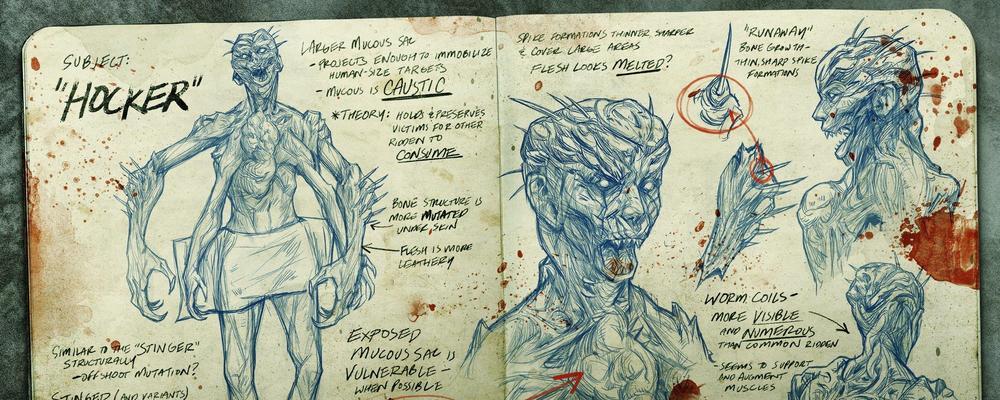 SUBJECT:
"HOCKER"
LARGER MUCOUS SAC
- PROJECTS ENOUGH TO IMMOBILIZE
HUMAN-SIZE TARGETS
- MUCOUS IS CAUSTIC
*THEORY: HOLDS & PRESERVES
VICTIMS FOR OTHER
RIDDEN TO
CONSUME
BONE STRUCTURE IS
MORE MUTATED
UNDER SKIN
FLESH IS MORE
LEATHERY
SIMILAR TO THE "STINGER"
STRUCTURALLY
- OFFSHOOT MUTATION?
STINGED (AND VARIANTS)
EXPOSED
MUCOUS SAC IS
VULNERABLE -
WHEN POSSIBLE
SPIKE FORMATIONS THINNER SHARPER
& COVER LARGE AREAS
FLESH LOOKS MELTED?
"RUNAWAY"
BONE GROWTH-
THIN, SHARP SPIKE
FORMATIONS
WORM COILS-
MORE VISIBLE
AND NUMEROUS
THAN COMMON RIDDEN
- SEEMS TO SUPPORT
AND AUGMENT
MUSCLES